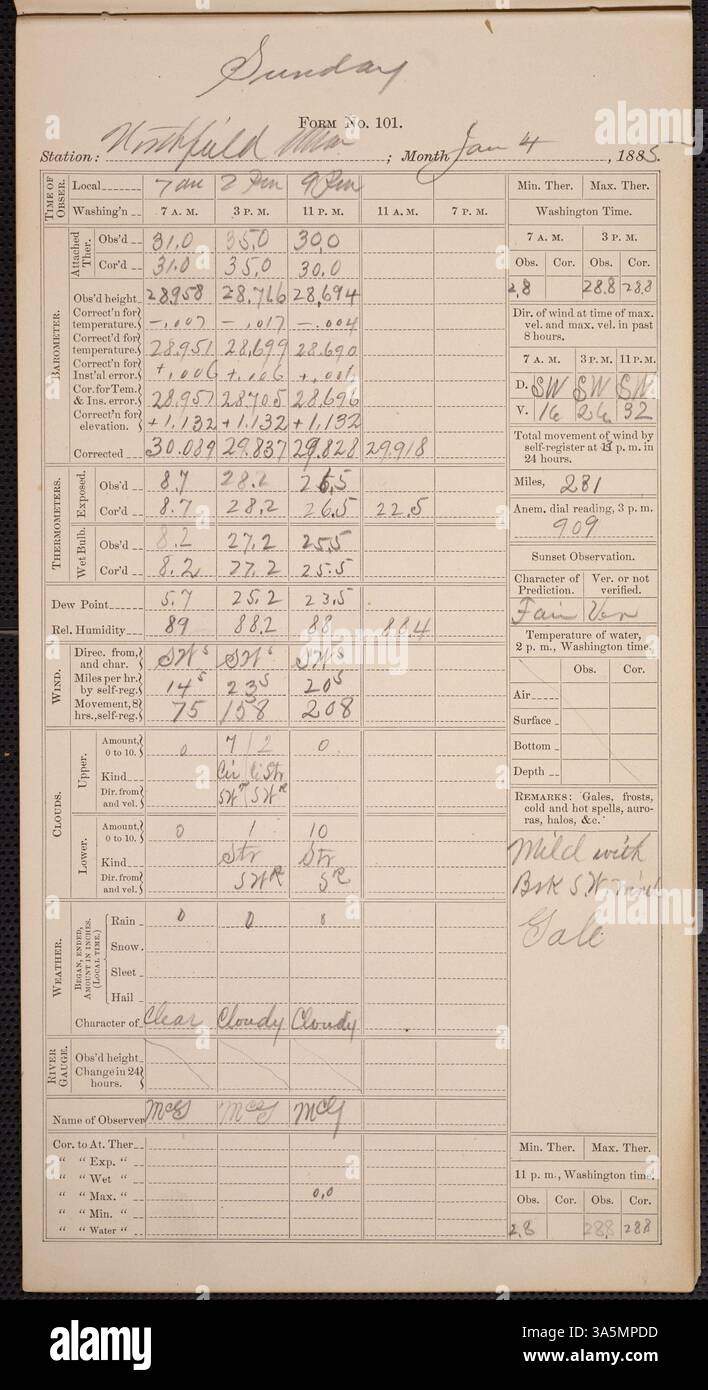 Sunday
FORM No. 101.
Station: Northfield Minn ; Month Jan 4 , 1885.
TIME OF OBSER. Local 7 am 2 Pm 9 Pm
Washing'n 7 A. M. 3 P. M. 11 P. M. 11 A. M. 7 P. M.
Attached Ther. Obs'd 31.0 35.0 30.0
Cor'd 31.0 35.0 30.0
BAROMETER.
Obs'd height 28.958 28.716 28.694
Correct'n for temperature. -.007 -.017 -.004
Correct'd for temperature. 28.951 28.699 28.690
Correct'n for Inst'al error. +.006 +.006 +.006
Cor. for Tem. & Ins. error. 28.957 28.705 28.696
Correct'n for elevation. +1.132 +1.132 +1.132
Corrected 30.089 29.837 29.828 29.918
THERMOMETERS.
Exposed. Obs'd 8.7 28.2 26.5
Cor'd 8.7 28.2 26.5 22.5
Wet Bulb. Obs'd 8.2 27.2 25.5
Cor'd 8.2 27.2 25.5
Dew Point 5.7 25.2 23.5
Rel. Humidity 89 88.2 88 88.4
WIND.
Direc. from, and char. SW s SW s SW s
Miles per hr. by self-reg. 14 s 23 s 20 s
Movement, 8 hrs., self-reg. 75 158 208
CLOUDS.
Upper. Amount, 0 to 10. 0 7 / 2 0
Kind Cir / CiStr
Dir. from and vel. SW R / SW R
Lower. Amount, 0 to 10. 0 1 10
Kind Str Str
Dir. from and vel. SW R S R
WEATHER.
BEGAN, ENDED, AMOUNT IN INCHES. (LOCAL TIME.)
Rain 0 0 0
Snow
Sleet
Hail
Character of Clear Cloudy Cloudy
RIVER GAUGE.
Obs'd height
Change in 24 hours.
Name of Observer McG McG McG
Cor. to At. Ther
" " Exp. "
" " Wet "
" " Max. " 0.0
" " Min. "
" " Water "
Min. Ther. Max. Ther.
Washington Time.
7 A. M. 3 P. M.
Obs. Cor. Obs. Cor.
2.8 28.8 28.8
Dir. of wind at time of max. vel. and max. vel. in past 8 hours.
7 A. M. 3 P. M. 11 P. M.
D. SW SW SW
V. 16 26 32
Total movement of wind by self-register at p. m. in 24 hours.
Miles, 281
Anem. dial reading, 3 p. m.
909
Sunset Observation.
Character of Prediction. Ver. or not verified.
Fair Ver
Temperature of water, 2 p. m., Washington time.
Obs. Cor.
Air
Surface
Bottom
Depth
REMARKS: Gales, frosts, cold and hot spells, auroras, halos, &c.
Mild with
Bsk SW wind
Gale
Min. Ther. Max. Ther.
11 p. m., Washington time.
Obs. Cor. Obs. Cor.
2.8 28.8 28.8
alamy
3A5MPDD
www.alamy.com